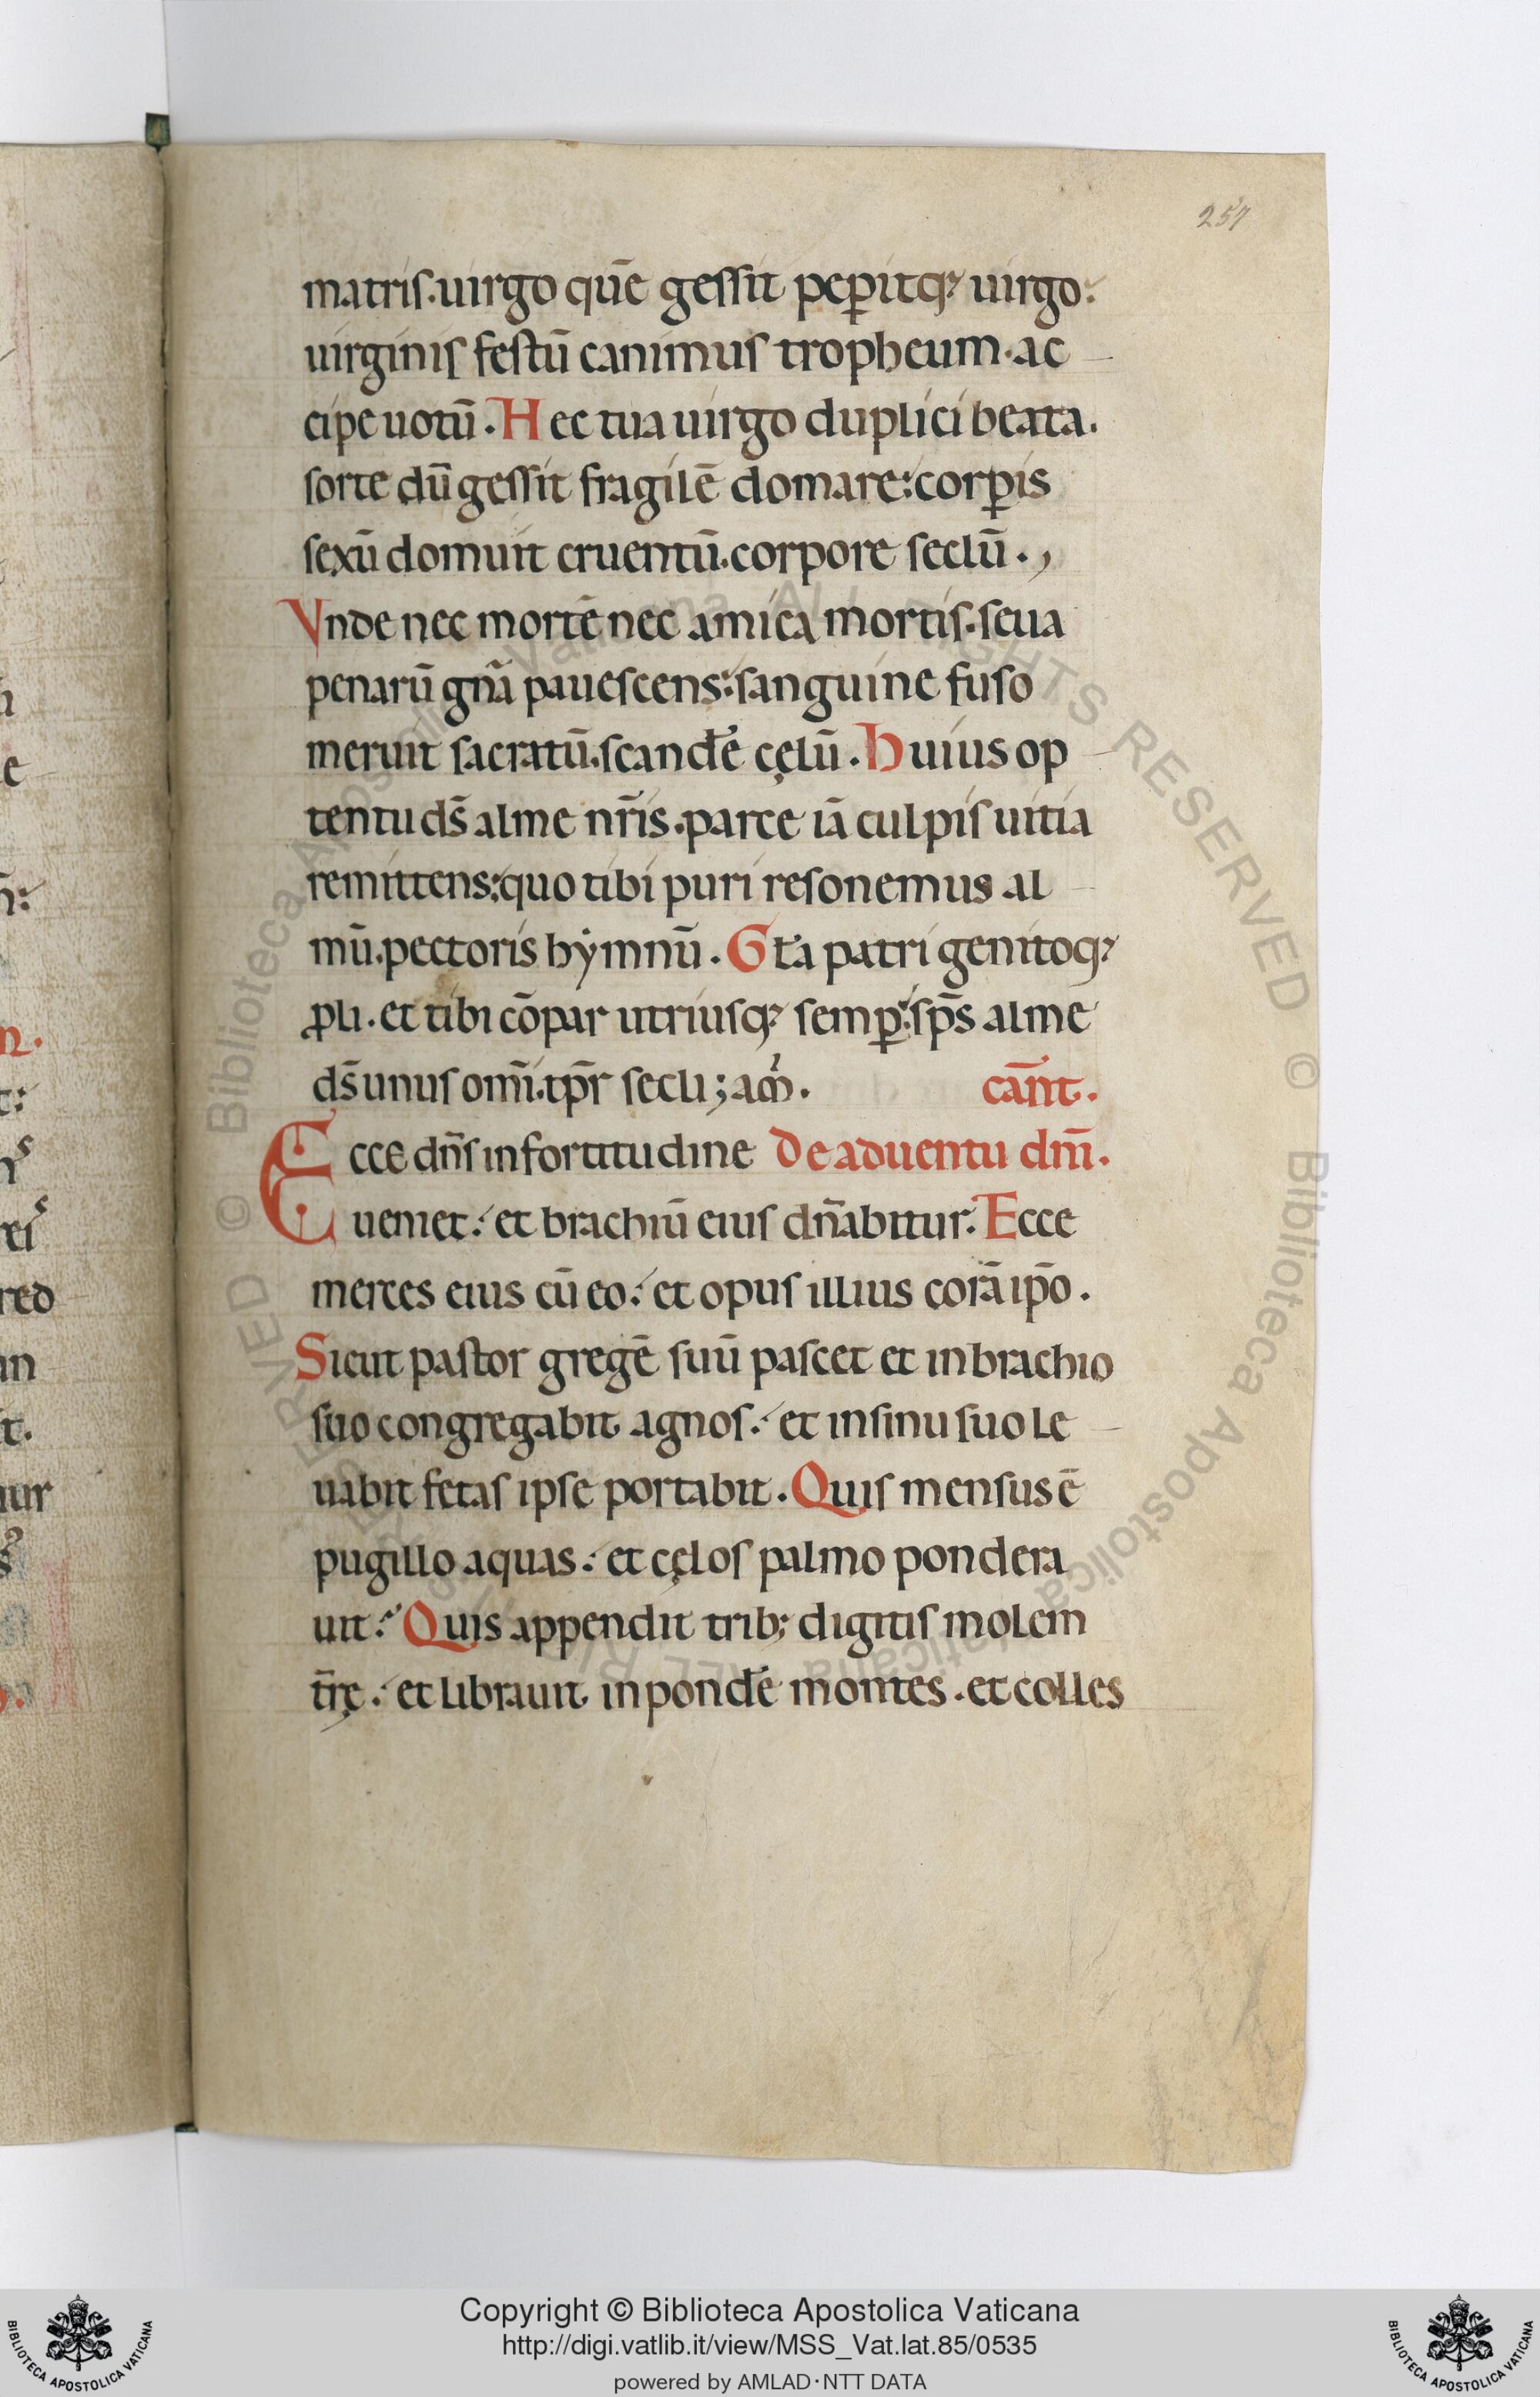 257
matris.uirgo quē gessit pep̄itq; uirgo:
uirginis festū canimus tropheum.ac
cipe uotū. Hec tua uirgo duplici beata.
sorte dū gessit fragilē domare: corp̄is
sexū domuit cruentū.corpore seclū.,
Vnde nec mortē nec amica mortis.seua
penarū gn̄a pauescens: sanguine fuso
meruit sacratū.scand̄e cęlū. Huius op
tentu ds̄ alme nr̄is.parce iā culpis uitia
remittens: quo tibi puri resonemus al
mū.pectoris hẏmnū. Gl̄a patri genitoq;
ꝓli. et tibi cōpar utriusq; semꝑ: sp̄s alme
ds̄ unus om̄i.tp̄r secli; am̄. cānt.
Ecce dn̄s in fortitudine De aduentu dm̄.
ueniet: et brachiū eius dn̄abitur. Ecce
merces eius cū eo: et opus illius corā ip̄o.
Sicut pastor gregē suū pascet et in brachio
suo congregabit agnos: et in sinu suo le
uabit fetas ipse portabit. Quis mensus ē
pugillo aquas: et cęlos palmo pondera
uit: Quis appendit trib; digitis molem
tr̄ę: et librauit in pond̄e montes. et colles
Copyright © Biblioteca Apostolica Vaticana
http://digi.vatlib.it/view/MSS_Vat.lat.85/0535
powered by AMLAD·NTT DATA
BIBLIOTECA APOSTOLICA VATICANA
BIBLIOTECA APOSTOLICA VATICANA